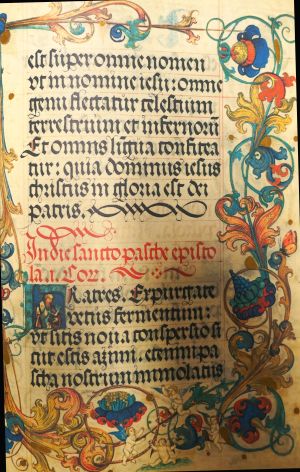 est super omne nomen
vt in nomine iesu: omne
genu flectatur celestium
terrestrium et infernorū
Et omnis lingua confitea
tur: quia dominus iesus
christus in gloria est dei
patris.
In die sancto pasche episto
la .i. Cor.
Fratres. Expurgate
vetus fermentum:
vt sitis noua conspersio si
cut estis azimi. etenim pa
scha nostrum immolatus